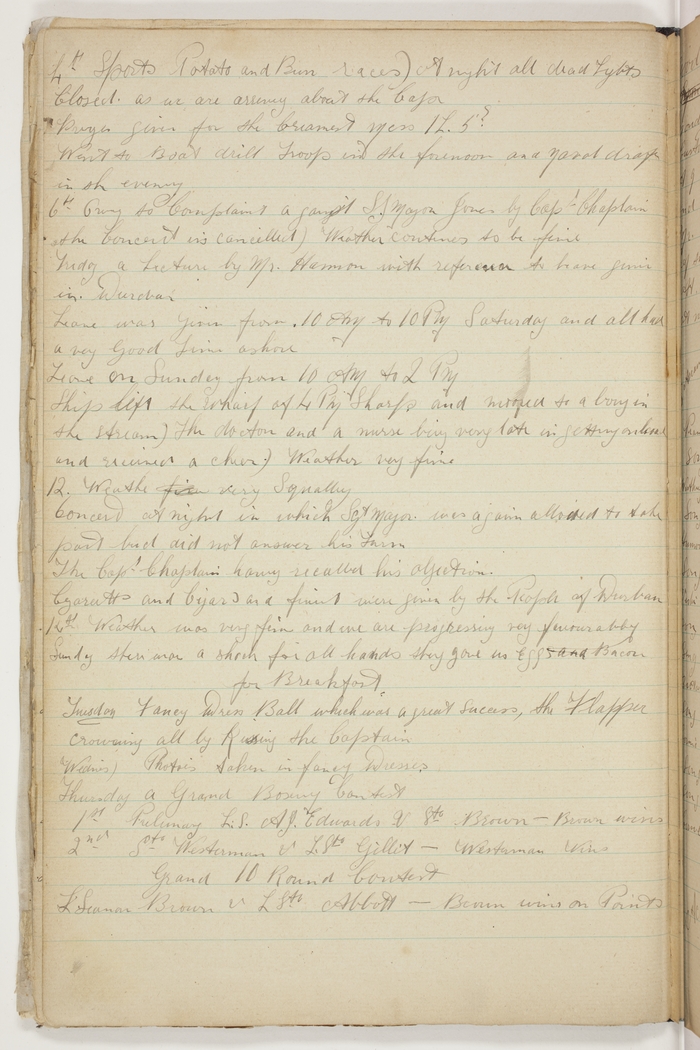 4th Sports Potato and Bun races) At night all dead lights
Closed. as we are arriving about the Cape
Prizes given for the Cleanest mess 1L. 5s
Went to Boat drill Troops in the forenoon and
in the evening
6th Owing to Complaint against S. Major Jones by Capt Chaplain
the Concert is cancelled) Weather continues to be fine
Friday a Lecture by Mr. Harmon with reference to leave given
in. Durban
Leave was given from .10 AM to 10 PM Saturday and all had
a very Good Time ashore
Leave on Sunday from 10 AM to 2 PM
Ship left the Wharf at 4 PM Sharp and moored to a bouy in
the stream) The doctor and a nurse being very late in getting onboard
and received a cheer) Weather very fine
12. Weathe fine very Squally
Concert at night in which Sgt Major. was again allowed to take
part but did not answer his turn
The Capt Chaplain having recalled his objection.
Cigaretts and Cigars and fruit were given by the People of Durban
14th Weather was very fine and we are progressing very favourabby
Sunday there was a shock for all hands they gave us Eggs and Bacon
for Breakfast
Tuesday Fancy Dress Ball which was a great success, the Flapper
crowning all by Kissing the Captain
Weds) Photos taken in fancy Dresses
Thursday a Grand Boxing Contest
1st Prelimary L.S. A.J. Edwards V Sto Brown — Brown wins
2nd Sto Westerman V L Sto Gillet — Westerman Wins
Grand 10 Round Contest
L Seaman Brown V L Sto Abbott — Brown wins on Points